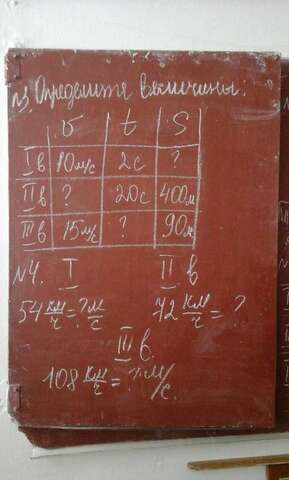 №3. Определите величины:
υ t S
I в 10 м/с 2 с ?
II в ? 20 с 400 м
III в 15 м/с ? 90 м
№4. I II в
54 км/ч = ? м/с 72 км/ч = ?
III в.
108 км/ч = ? м/с.